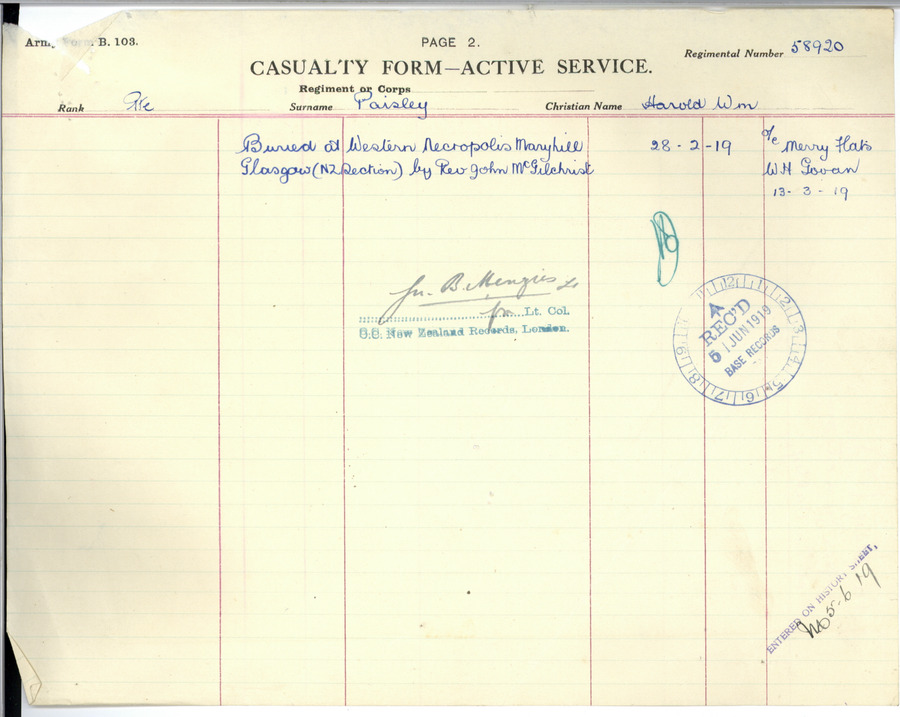 Army Form B. 103.
PAGE 2.
Regimental Number 58920
CASUALTY FORM—ACTIVE SERVICE.
Regiment or Corps
Rank Pte Surname Paisley Christian Name Harold Wm
Buried at Western Necropolis Maryhill 28-2-19 o/c Merry Flats
Glasgow (NZ Section) by Rev John McGilchrist WH Govan
13-3-19
for Lt. Col.
O.C. New Zealand Records, London.
12 1 2 3 4 5 6 7 8 9
A
REC'D
5 JUN 1919
BASE RECORDS
ENTERED ON HISTORY SHEET,
5-6-19